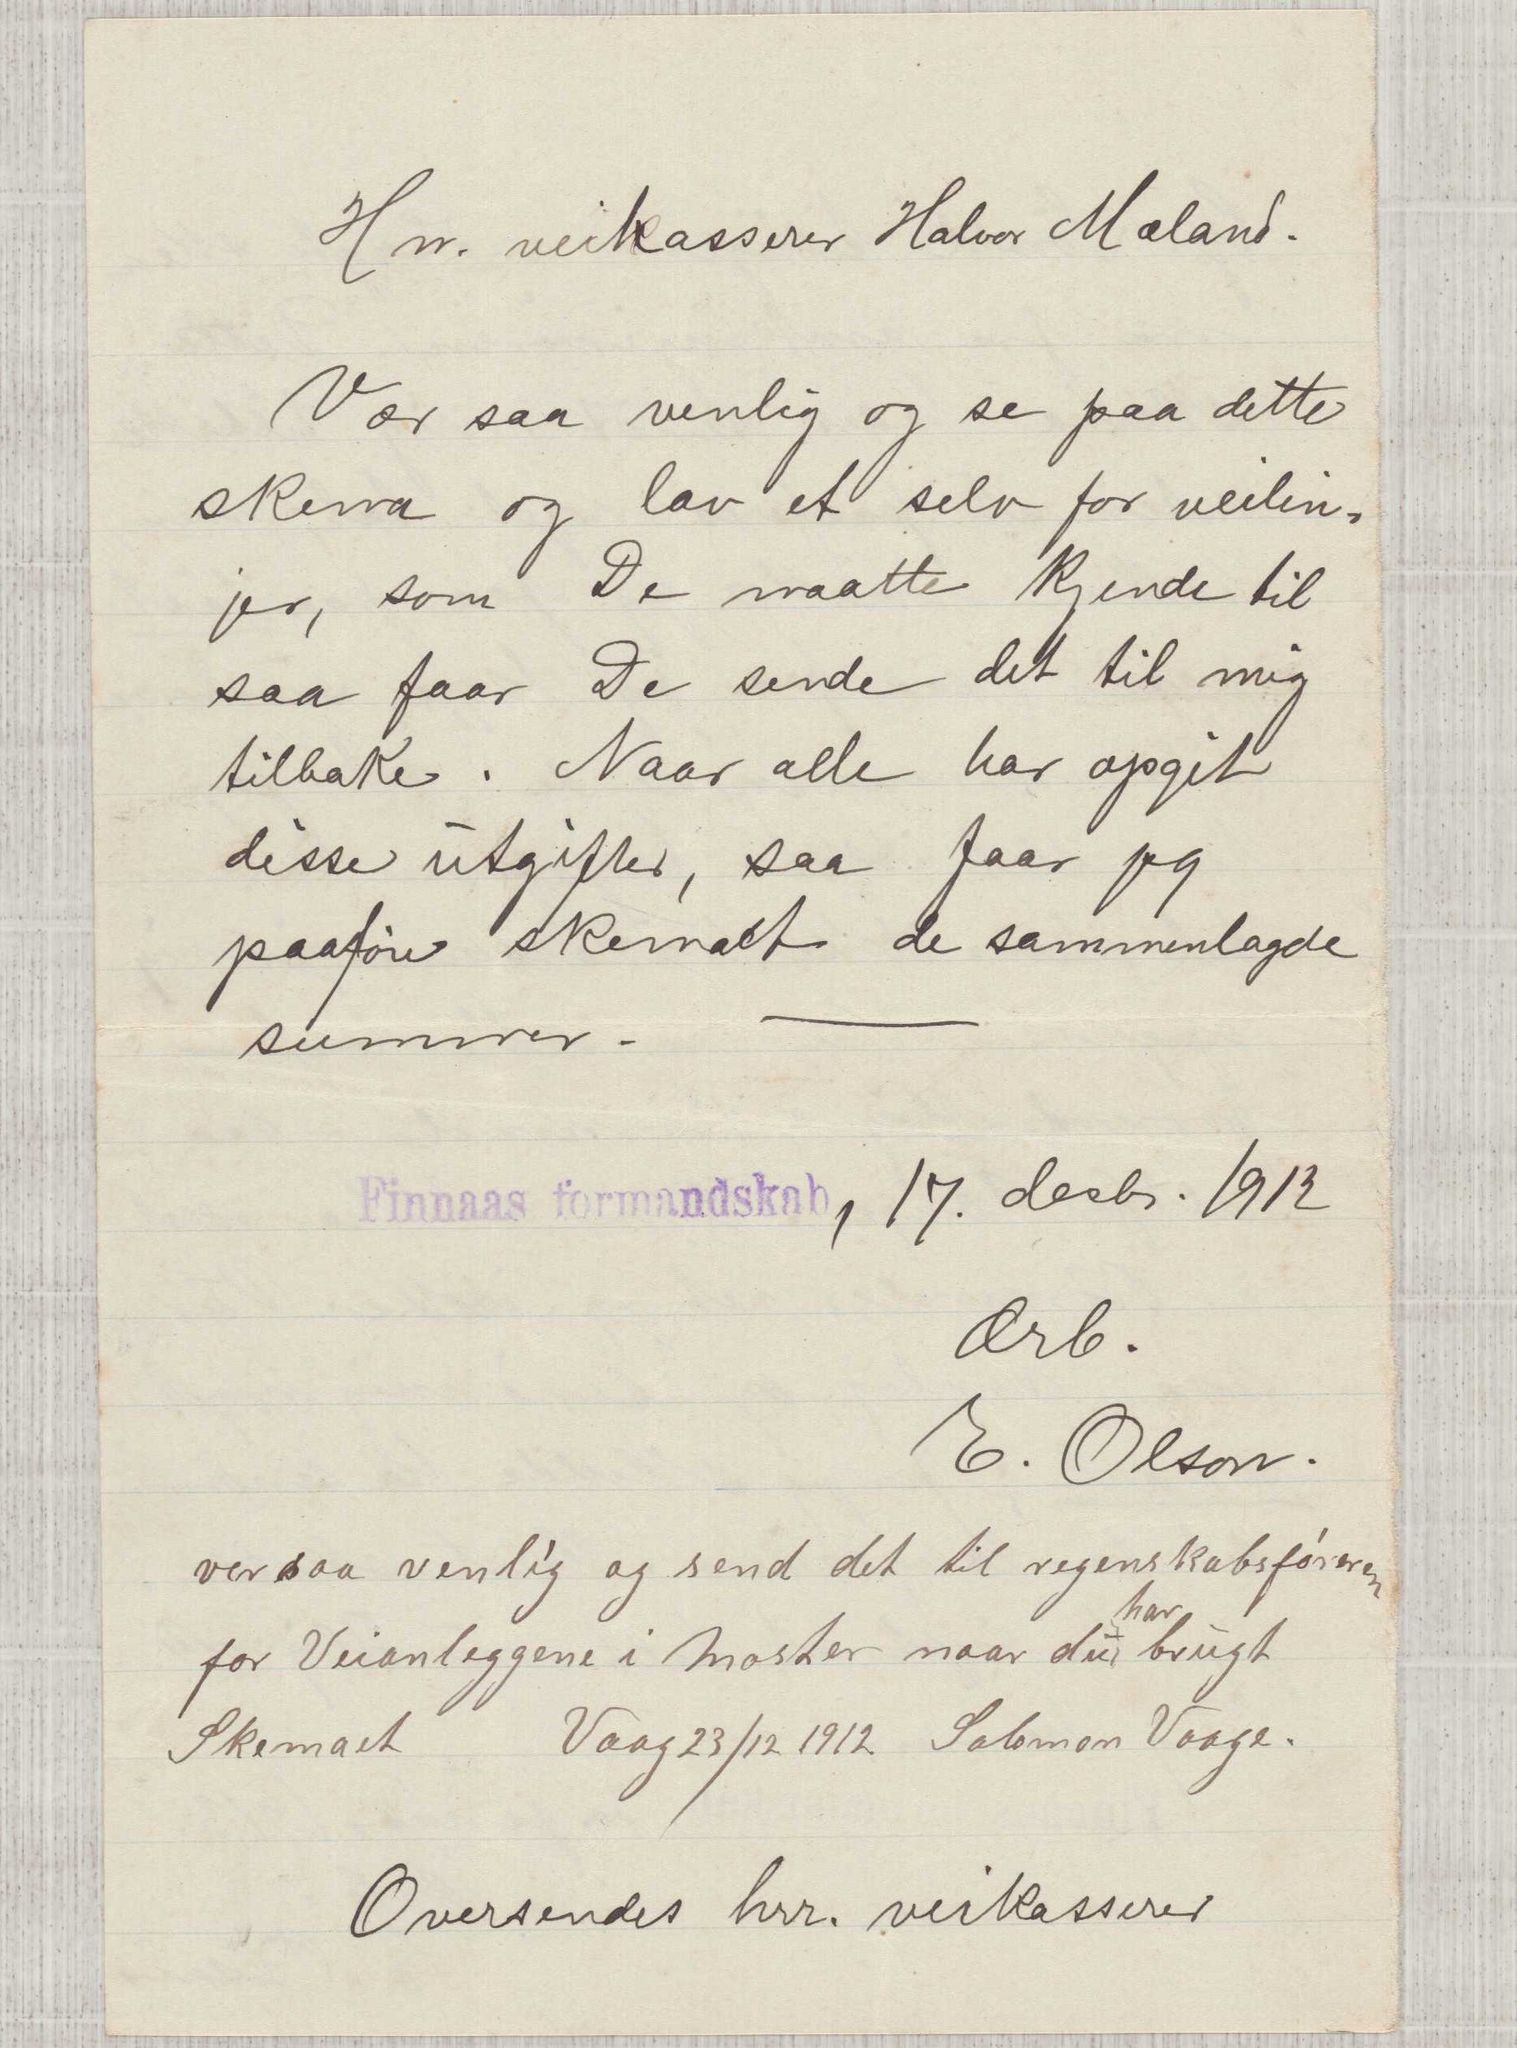 Hr. veikasserer Halvor Mæland.
Vær saa venlig og se paa dette
skema og lav et selv for veilin-
jer, som De maatte kjende til
saa faar De sende det til mig
tilbake. Naar alle har opgit
disse utgifter, saa faar jeg
paaføre skemaet de sammenlagde
summer.
Finnaas formandskab, 17. desbr. 1912
Ærb.
E. Olson.
ver saa venlig og send det til regenskabsføreren
for Veianleggene i Moster naar du har brugt
Skemaet Vaag 23/12 1912 Salomon Vaage.
Oversendes hrr. veikasserer